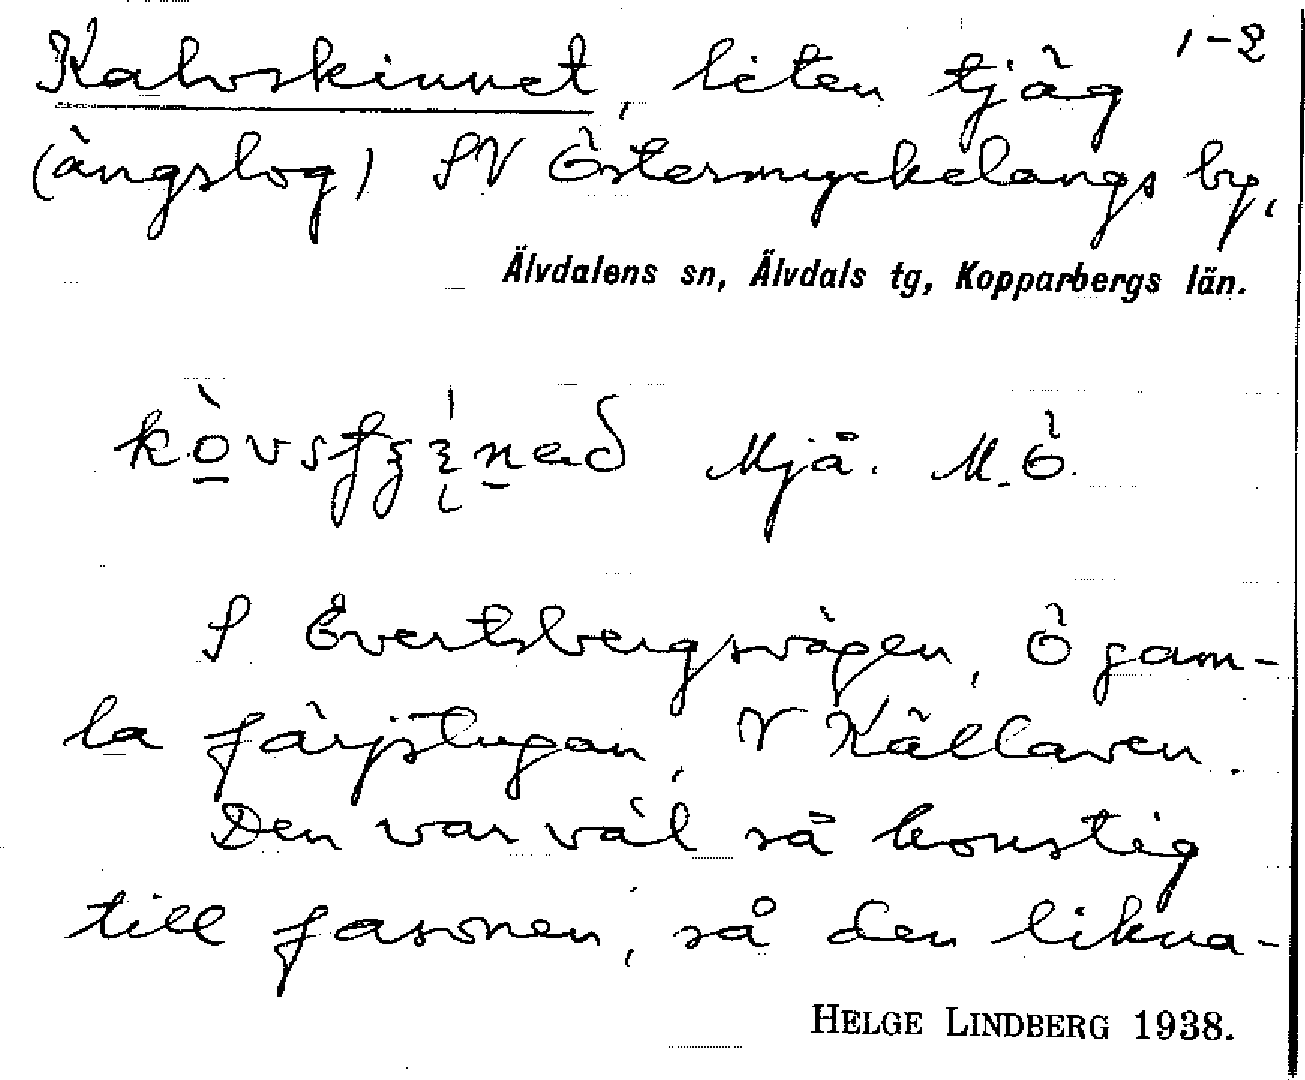 Kalvskinnet, liten tjäg 1-2
(ängslog) SV Östermyckelängs by,
Älvdalens sn, Älvdals tg, Kopparbergs län.
Mjå. M.Ö.
S Evertsbergsvägen, Ö gam-
la färjstugan, V Källaren.
Den var väl så konstig
till fasonen, så den likna-
HELGE LINDBERG 1938.